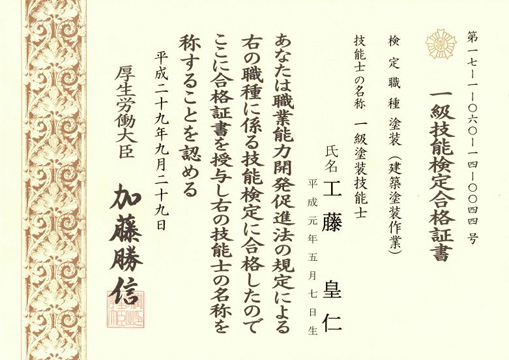 第一七一一〇六〇一一四一〇〇四四号
一級技能検定合格証書
検定職種 塗装(建築塗装作業)
技能士の名称 一級塗装技能士
氏名 工藤 皇仁
平成元年五月七日生
あなたは職業能力開発促進法の規定による
右の職種に係る技能検定に合格したので
ここに合格証書を授与し右の技能士の名称を
称することを認める
平成二十九年九月二十九日
厚生労働大臣 加藤勝信